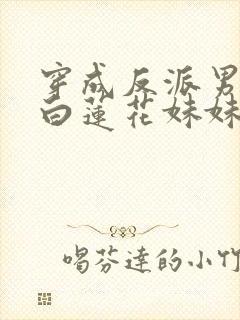 穿成反派男
白蓮花妹妹
喝芬達的小竹